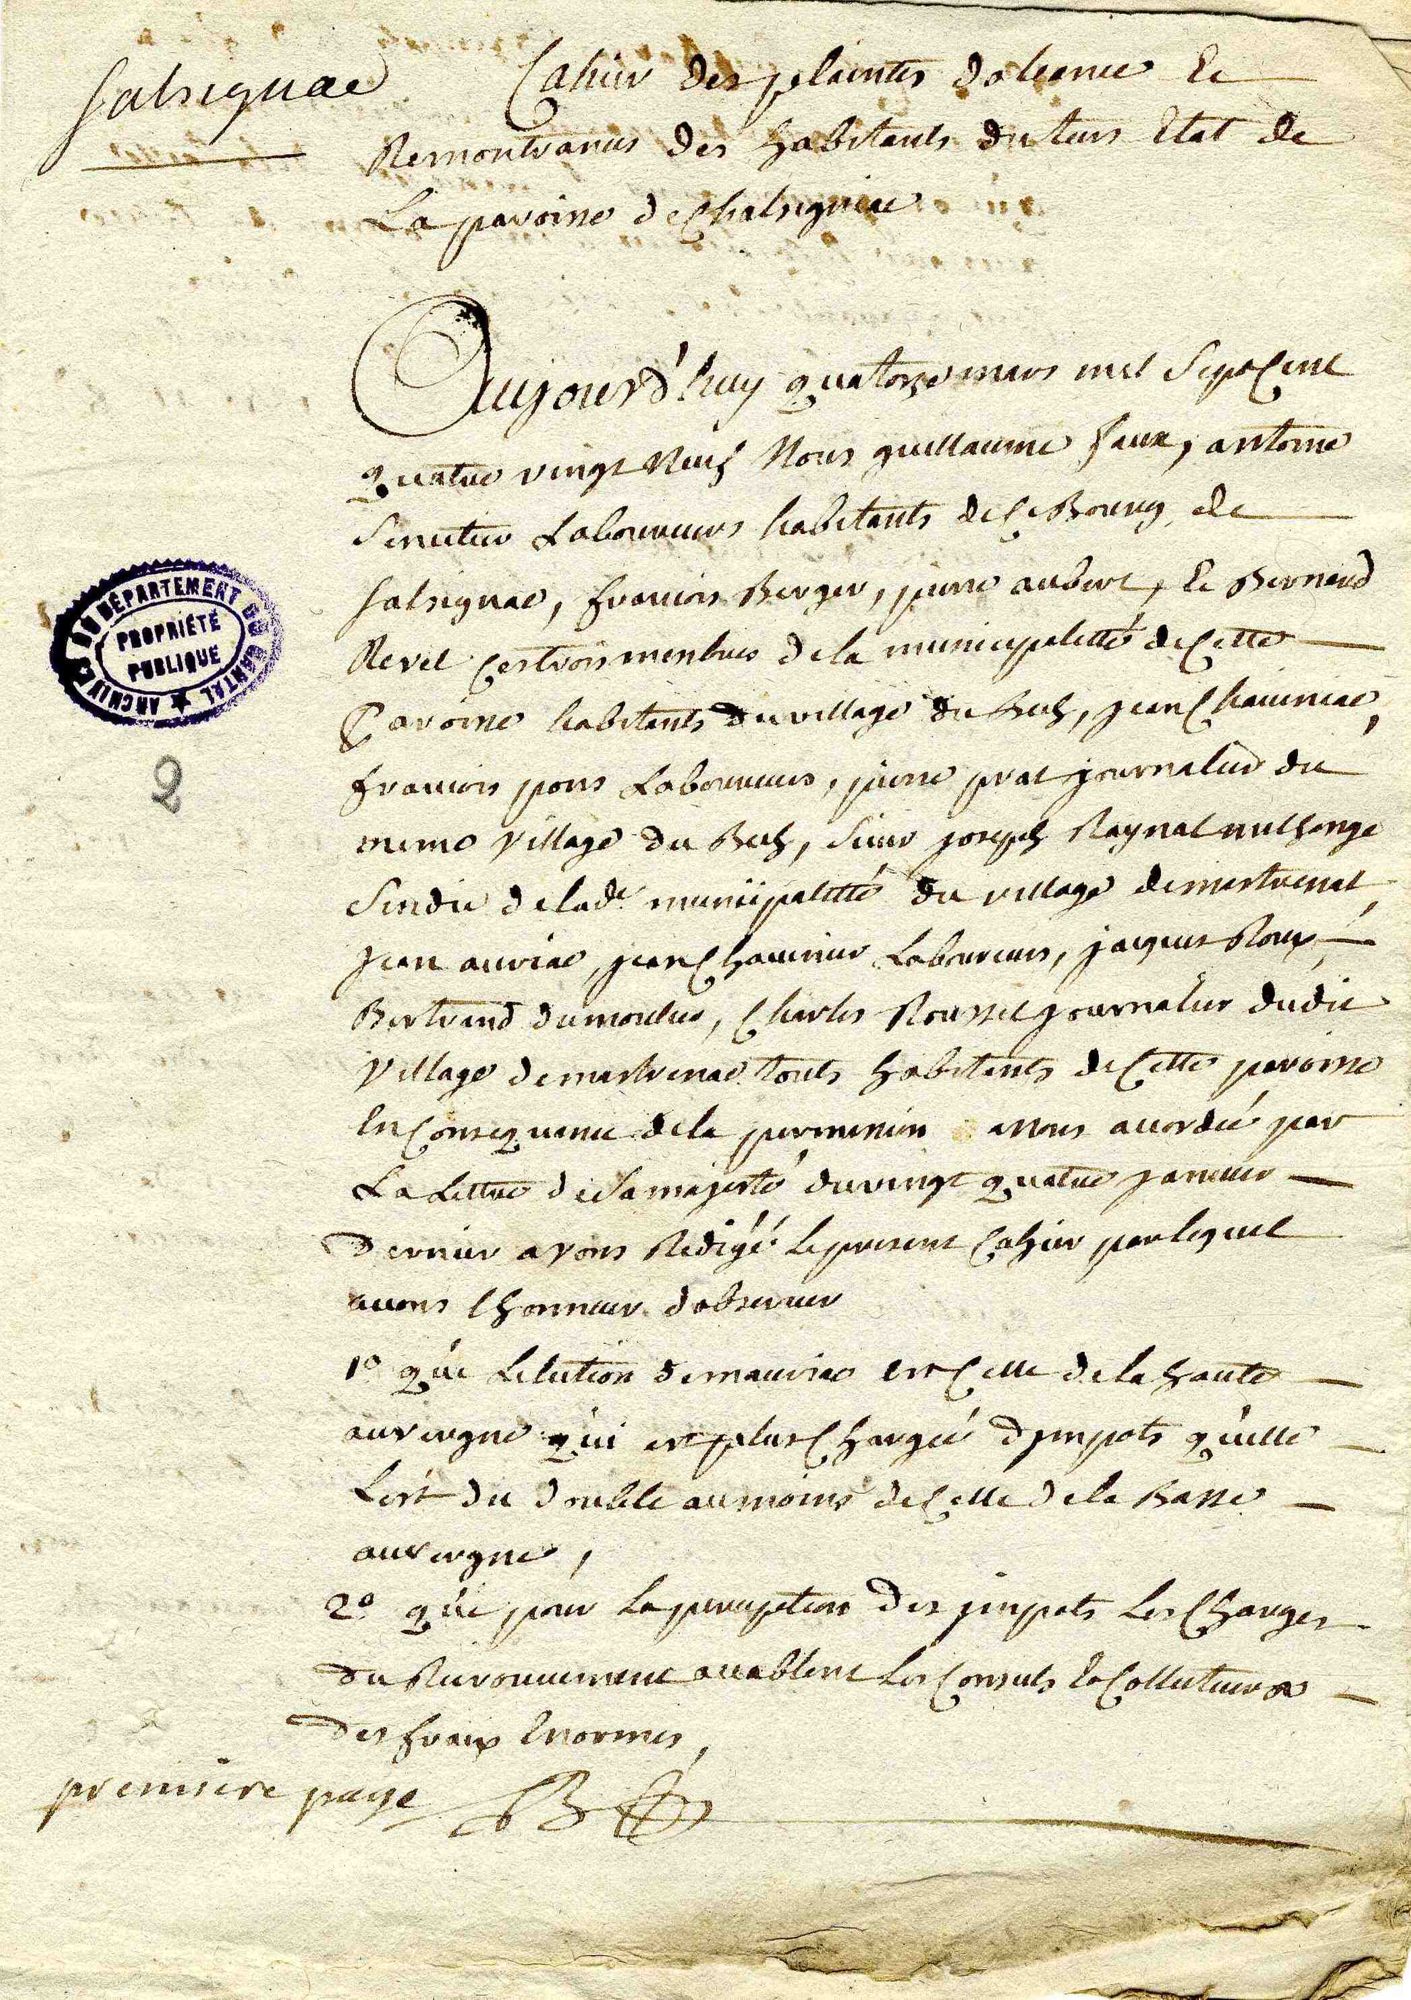 Salsignac
Cahier des plaintes doleance Et
Remontrances des habitants du tiers Etat de
La paroisse de Chalsignac
Aujourd'huy quatorze mars mil Sept Cent
quatre vingt neuf Nous guillaume faux, antoine
Senectier Laboureurs habitants de Ce Bourg de
Salsignac, francois Berger, pierre aubert, Et Bernard
Revel Ces trois menbres de la municipalitté de Cette
Paroisse habitants du village du Bech, jean Chauviac,
francois pons Laboureurs, pierre prat journalier du
meme village du Bech, Sieur joseph Raynal
Sindic de lade municipalitté du village de mestrenac,
jean auriac, jean Chauvier Laboureurs, jaques Roux,
Bertrand dumoulin, Charles Roussel journalier dudit
Village de mestrenac touts habitants de Cette paroisse
En Consequance de la permission a nous accordée par
La Lettre de Sa majesté du vingt quatre janvier
dernier avons Redigé Le present Cahier par lequel
avons Lhonneur dobserver
1º que Lelection de mauriac est Celle de la haute
auvergne qui est plus Chargée dimpots quelle
Lest du double au moins de Celle de la Basse
auvergne,
2º que pour La perception des impots Les Charges
du Recouvrement accablent Les Consuls Et Collecteurs
des fraix Enormes,
premiere page
ARCHIVES DU DÉPARTEMENT DU CANTAL
PROPRIÉTÉ
PUBLIQUE
2